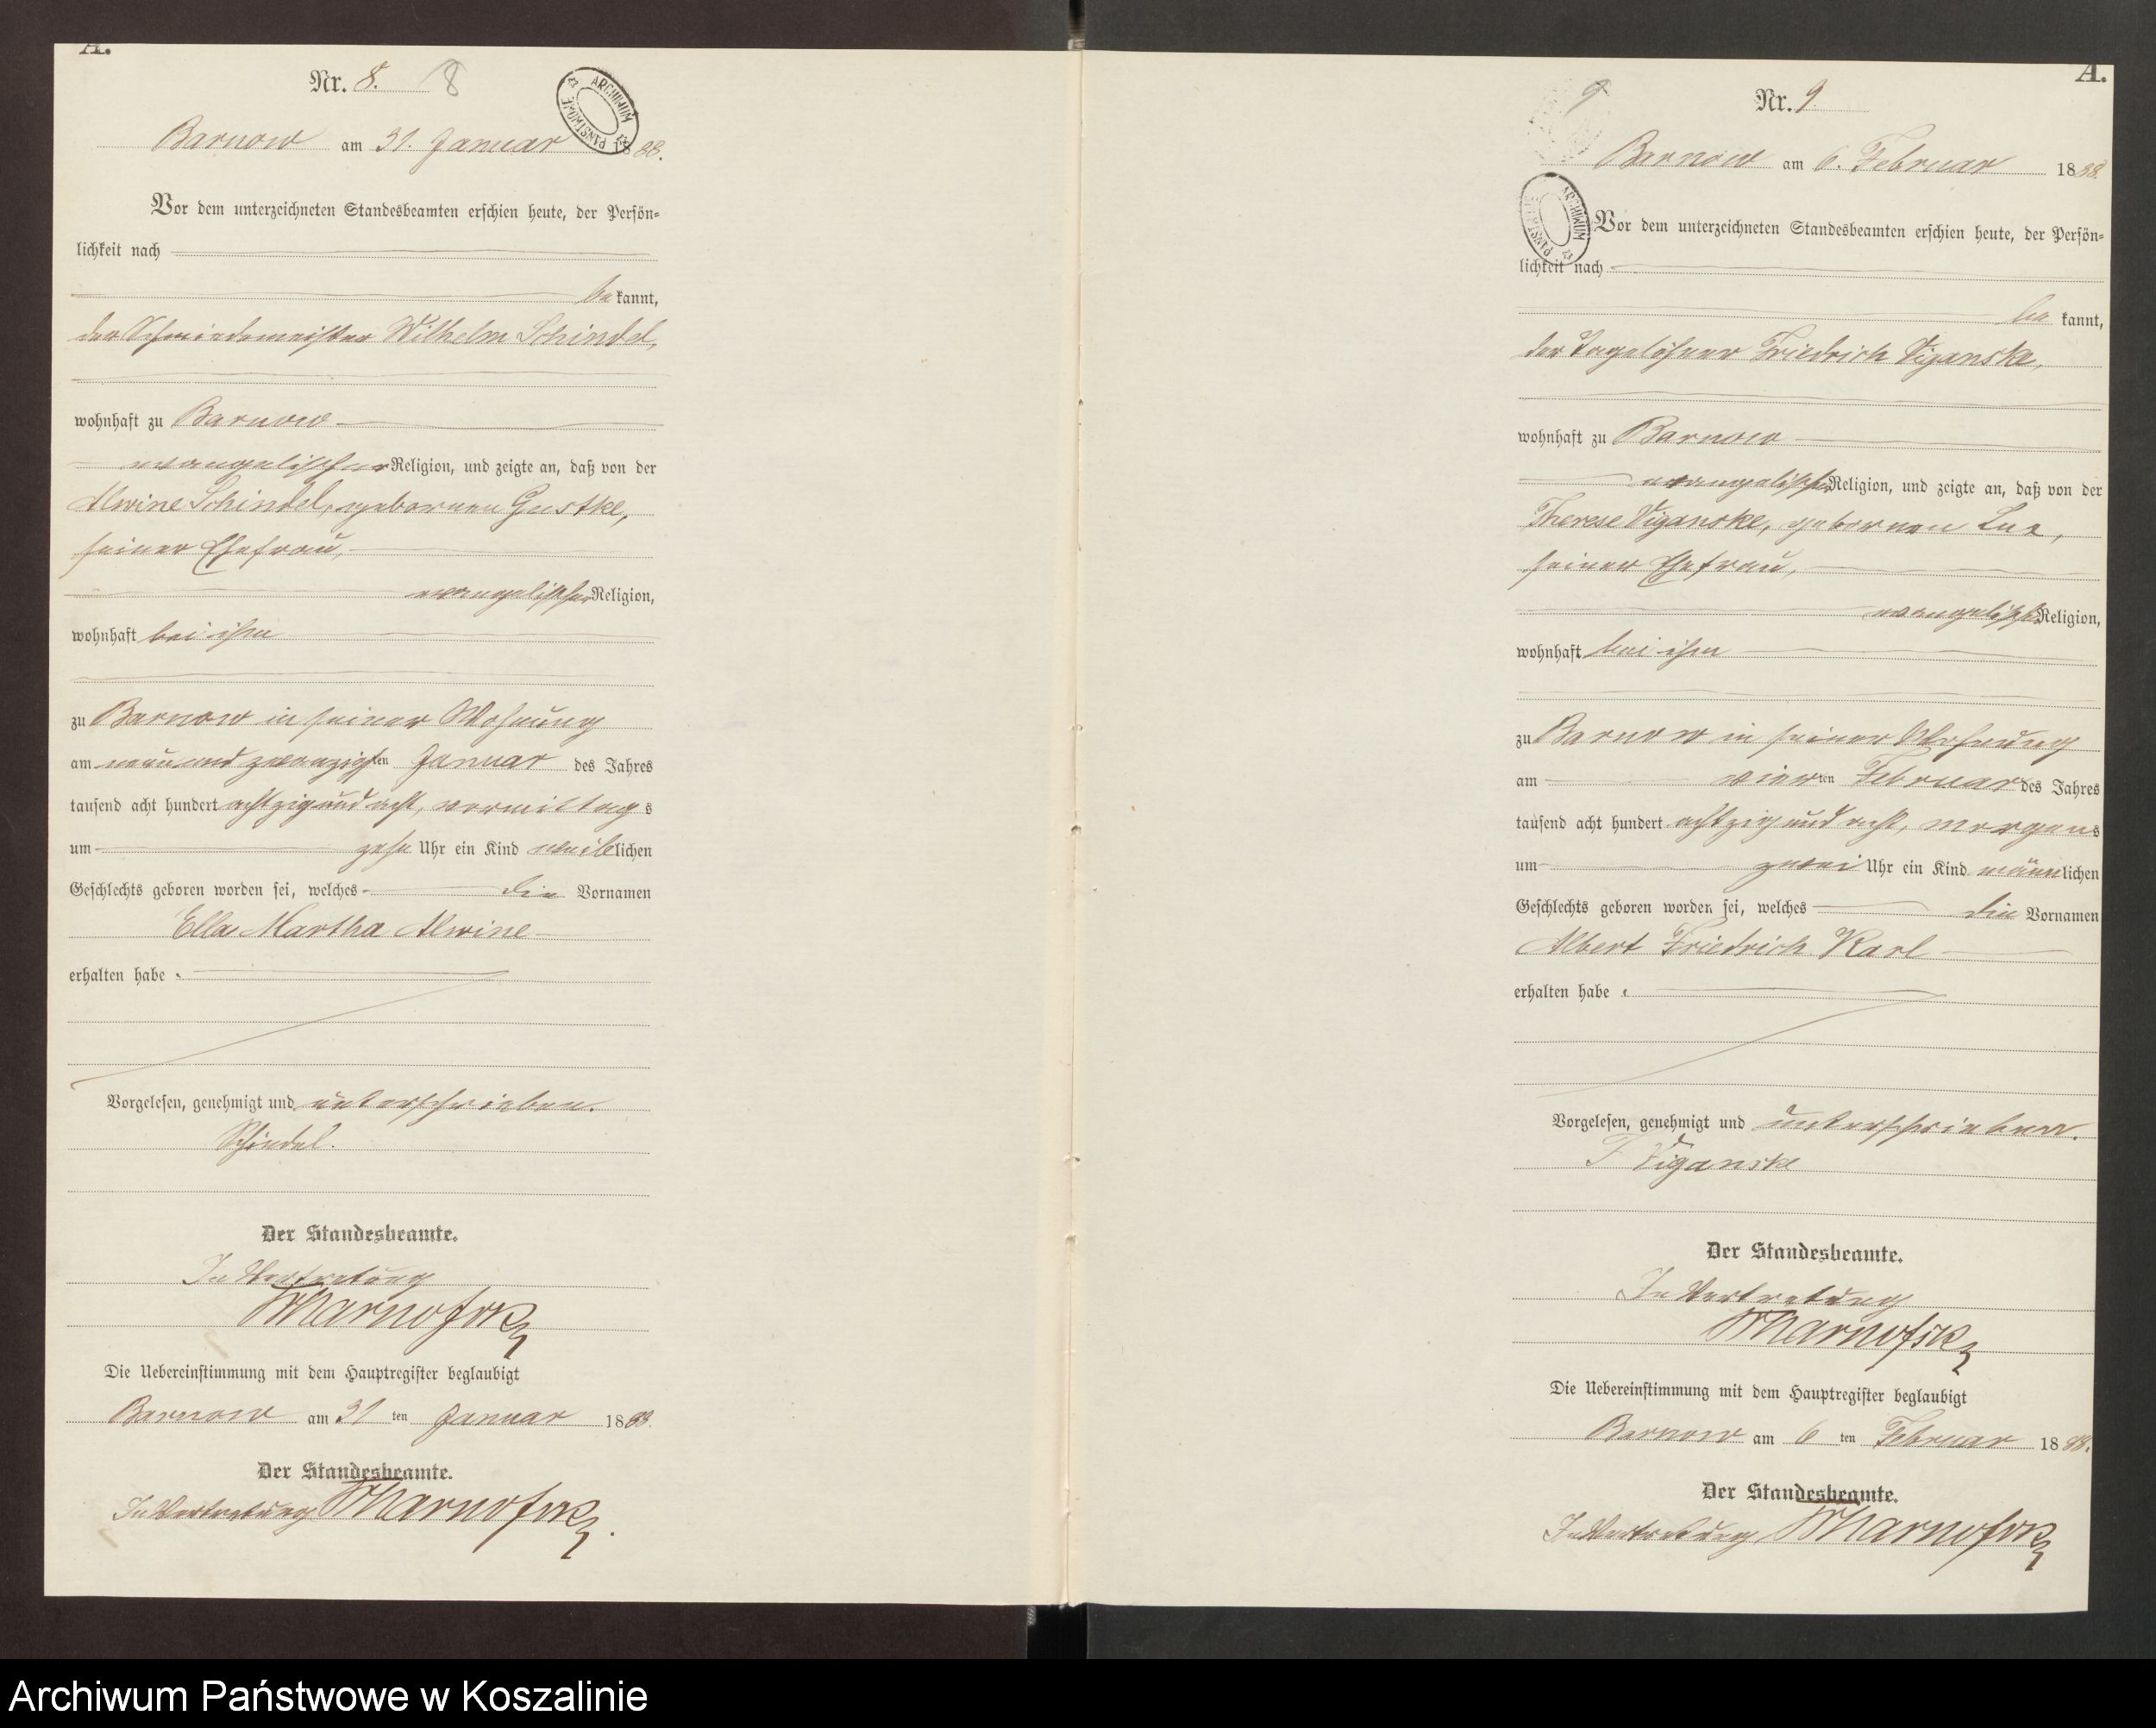 A.
Nr. 8. 8
ARCHIWUM PAŃSTWOWE
Barnow am 31. Januar 1888.
Vor dem unterzeichneten Standesbeamten erschien heute, der Persön-
lichkeit nach
be kannt,
der Schmiedemeister Wilhelm Schindel,
wohnhaft zu Barnow
evangelischer Religion, und zeigte an, daß von der
Alwine Schindel, geborenen Gustke,
seiner Ehefrau,
evangelischer Religion,
wohnhaft bei ihm
zu Barnow in seiner Wohnung
am neun und zwanzigsten Januar des Jahres
tausend acht hundert achtzig und acht, vormittags
um zehn Uhr ein Kind weiblichen
Geschlechts geboren worden sei, welches die Vornamen
Ella Martha Alwine
erhalten habe.
Vorgelesen, genehmigt und unterschrieben.
Schindel.
Der Standesbeamte.
In Vertretung
Die Uebereinstimmung mit dem Hauptregister beglaubigt
Barnow am 31 ten Januar 1888.
Der Standesbeamte.
In Vertretung
A.
9 Nr. 9.
Barnow am 6. Februar 1888.
ARCHIWUM PAŃSTWOWE
Vor dem unterzeichneten Standesbeamten erschien heute, der Persön-
lichkeit nach
be kannt,
der Tagelöhner Friedrich Viganske,
wohnhaft zu Barnow
evangelischer Religion, und zeigte an, daß von der
Therese Viganske, geborenen
seiner Ehefrau,
evangelischer Religion,
wohnhaft bei ihm
zu Barnow in seiner Wohnung
am vierten Februar des Jahres
tausend acht hundert achtzig und acht, morgens
um zwei Uhr ein Kind männlichen
Geschlechts geboren worden sei, welches die Vornamen
Albert Friedrich Karl
erhalten habe.
Vorgelesen, genehmigt und unterschrieben.
F Viganske
Der Standesbeamte.
In Vertretung
Die Uebereinstimmung mit dem Hauptregister beglaubigt
Barnow am 6 ten Februar 1888.
Der Standesbeamte.
In Vertretung
Archiwum Państwowe w Koszalinie